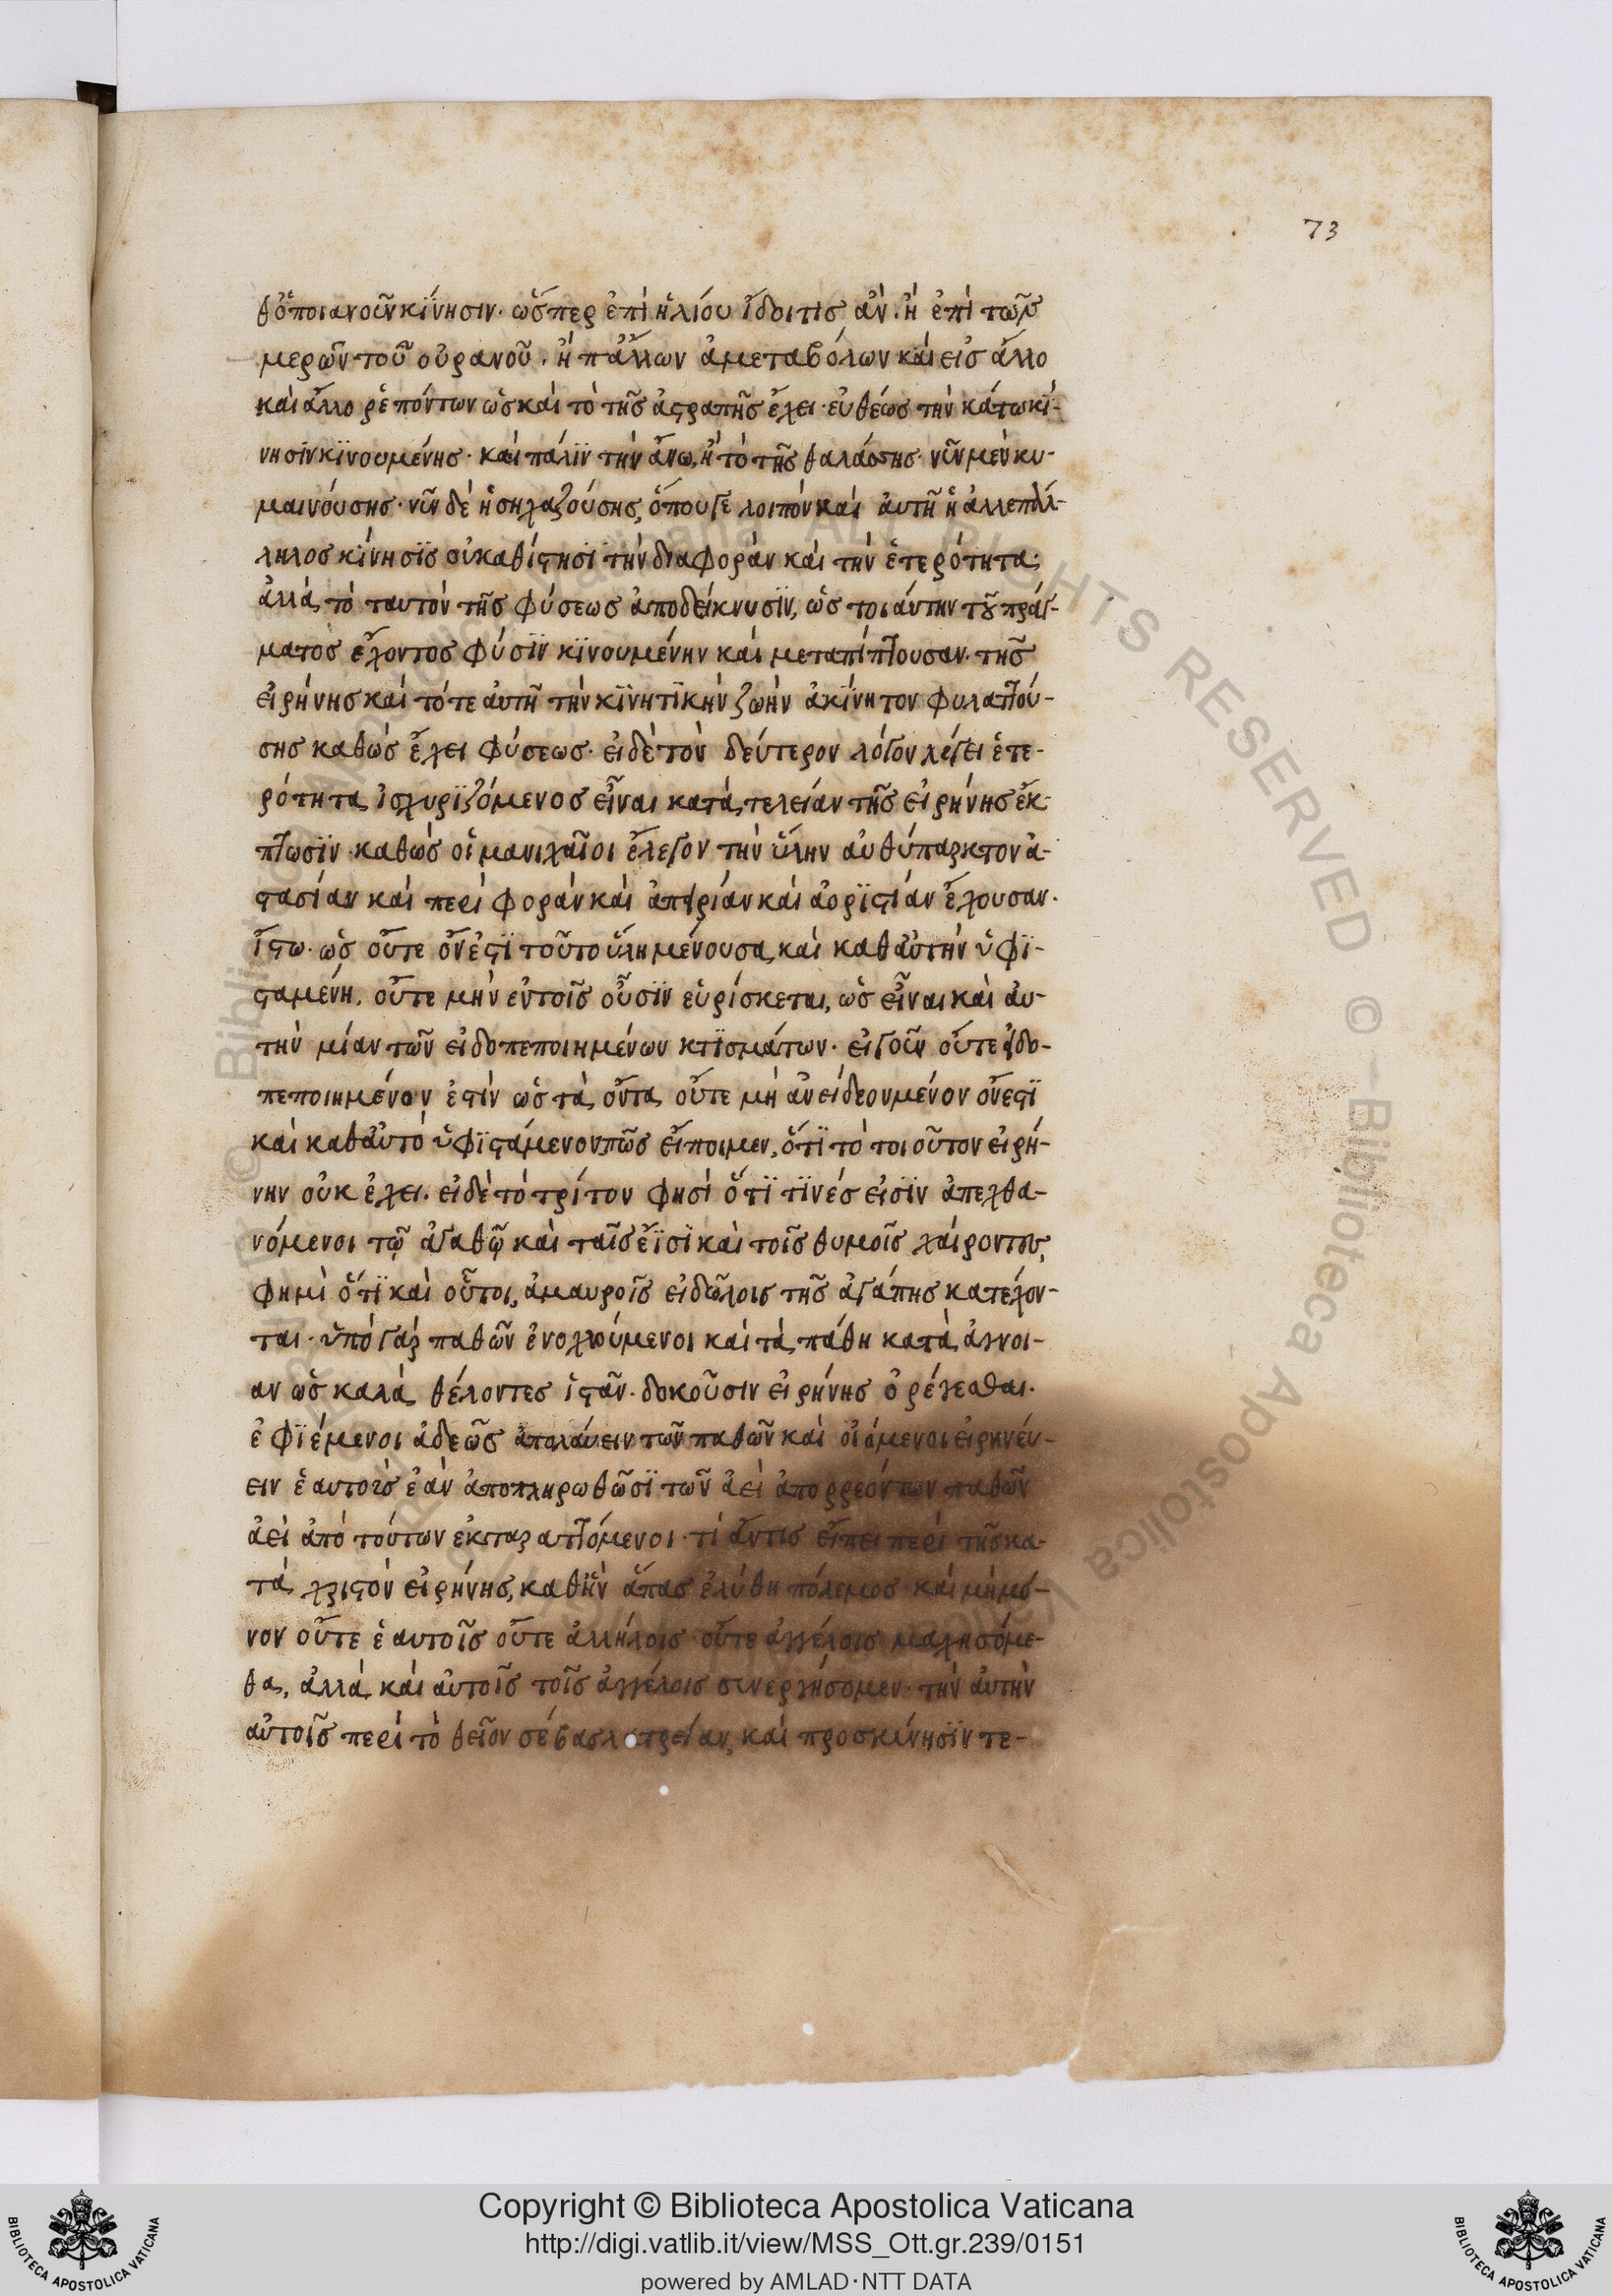 73
θ ὁποιανοῦν κίνησιν· ὥσπερ ἐπὶ ἡλίου ἴδοι τὶς ἄν. ἢ ἐπὶ τῶν
μερῶν τοῦ οὐρανοῦ. ἢ π ἄλλων ἀμεταβόλων καὶ εἰς ἄλλο
καὶ ἄλλο ῥεπόντων ὡς καὶ τὸ τῆς ἀστραπῆς ἔχει· εὐθέως τὴν κάτω κϊ-
νησϊν κϊνουμένης· καὶ πάλϊν τὴν ἄνω, ἢ τὸ τῆς θαλάσσης νῦν μὲν κυ-
μαινούσης· νῦν δὲ ἡσηχαζούσης, ὅπουγε λοιπὸν καὶ ἀυτῆ ἡ ἀλλεπάλ-
ληλος κίνησϊς οὐ καθίστησϊ τὴν διαφορὰν καὶ τὴν ἑτερότητα·
ἀλλὰ τὸ ταυτὸν τῆς φύσεως ἀποδείκνυσϊν, ὡς τοιάυτην τοῦ πράγ-
ματος ἔχοντος φύσϊν κϊνουμένην καὶ μεταπίπτουσαν· τῆς
εἰρήνης καὶ τότε ἀυτῆ τὴν κϊνητϊκὴν ζωὴν ἀκίνητον φυλαττού-
σης καθὼς ἔχει φύσεως· εἰ δὲ τὸν δεύτερον λόγον λέγει ἑτε-
ρότητα ἰσχυρϊζόμενος εἶναι κατὰ τελείαν τῆς εἰρήνης ἔκ-
πτωσϊν· καθὼς οἱ μανιχαῖοι ἔλεγον τὴν ὕλην αυθύπαρκτον ἀ-
στασίαν καὶ περιφορὰν καὶ ἀπειρίαν καὶ ἀορϊστίαν ἔχουσαν·
ἴστω· ὡς οὔτε ὄν ἐστϊ τοῦτο ὕλη μένουσα, καὶ καθ ἀυτὴν ὑφϊ-
σταμένη. οὔτε μὴν ἐν τοῖς οὖσϊν εὑρίσκεται, ὡς εἶναι καὶ ἀυ-
τὴν μίαν τῶν εἰδοπεποιημένων κτϊσμάτων· εἰ γοῦν οὔτε εἰδο-
πεποιημένον ἐστὶν ὡς τὰ ὄντα οὔτε μὴ ἀνείδεον μένον ὄν ἐστϊ
καὶ καθ ἀυτὸ ὑφϊστάμενον πῶς εἴποιμεν, ὅτϊ τὸ τοιοῦτον εἰρή-
νην οὐκ ἔχει· εἰ δὲ τὸ τρίτον φησὶ ὅτϊ τϊνές εἰσϊν ἀπεχθα-
νόμενοι τῷ ἀγαθῷ καὶ ταῖς ἔϊσϊ καὶ τοῖς θυμοῖς χαίροντες,
φημὶ ὅτϊ καὶ οὗτοι, ἀμαυροῖς εἰδώλοις τῆς ἀγάπης κατέχον-
ται· ὑπὸ γὰρ παθῶν ἐνοχλούμενοι καὶ τὰ πάθη κατὰ ἄγνοι-
αν ὡς καλὰ θέλοντες ἱστᾶν· δοκοῦσιν εἰρήνης ὀρέγεσθαι·
ἐφϊέμενοι ἀδεῶς ἀπολάυειν τῶν παθῶν καὶ οἰόμενοι εἰρηνέυ-
ειν ἑαυτοὺς ἐὰν ἀποπληρωθῶσϊ τῶν ἀεὶ ἀπορρεόντων παθῶν
ἀεὶ ἀπὸ τούτων ἐκταραττόμενοι· τί ἄν τις εἴπει περὶ τῆς κα-
τὰ χριστὸν εἰρήνης, καθ ἣν ἅπας ἐλύθη πόλεμος καὶ μὴ μό-
νον οὔτε ἑαυτοῖς οὔτε ἀλλήλοις οὔτε ἀγγέλοις μαχησόμε-
θα, ἀλλὰ καὶ ἀυτοῖς τοῖς ἀγγέλοις συνεργήσομεν· τὴν ἀυτὴν
αὐτοῖς περὶ τὸ θεῖον σέβας λατρείαν, καὶ προσκύνησϊν τε-
Copyright © Biblioteca Apostolica Vaticana
http://digi.vatlib.it/view/MSS_Ott.gr.239/0151
powered by AMLAD·NTT DATA
BIBLIOTECA APOSTOLICA VATICANA
BIBLIOTECA APOSTOLICA VATICANA